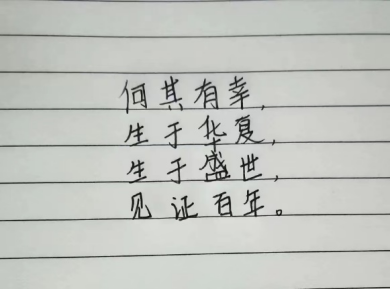 何其有幸,
生于华夏,
生于盛世,
见证百年。